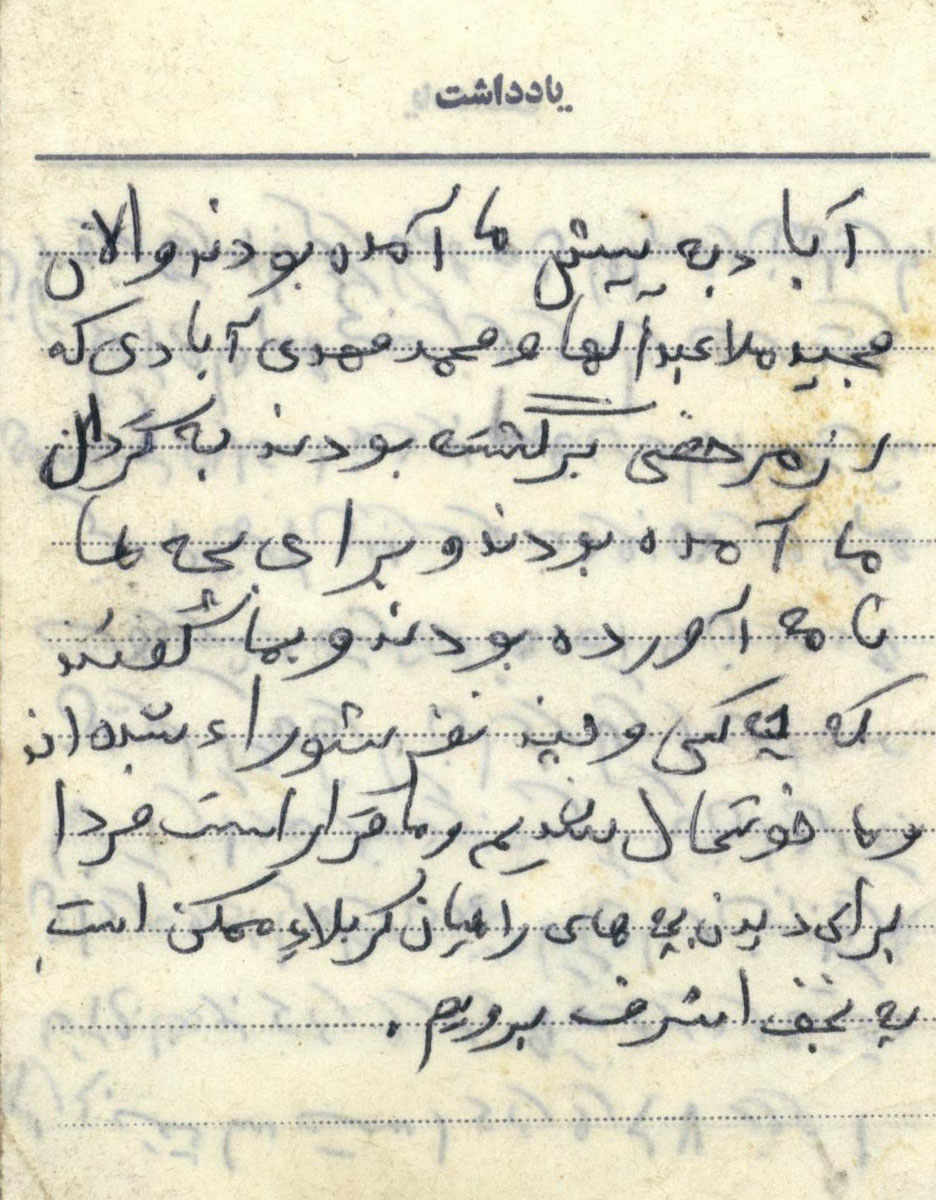 یادداشت
آباد به پیش ما آمده بودند والان
مجید ملا عبدالهی و محمد مهدی آبادی که
از مرخصی برگشته بودند به گردان
ما آمده بودند و برای بچه ها
نامه آورده بودند و بما گفتند
که چه کسی و چند نفر شوراء شده اند
و ما خوشحال شدیم و ما قرار است فردا
برای دیدن بچه های راهیان کربلاء ممکن است
به نجف اشرف برویم.